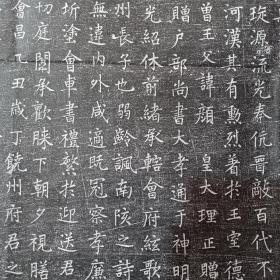 琁源流光秦伉晉敵百代不
河漢其有勲烈著於王室德
曾王父諱顔 皇大理正贈
贈户部尚書大孝通于神明
光紹休前緒承轄會府絃歌
州長子也弱齡諷南陔之詩
無違内外咸適既冠察孝廉
圻塗會車書禮繁於迎送君
切庭闈承歡膝下朝夕視膳
會昌乙丑歲丁饒州府君之